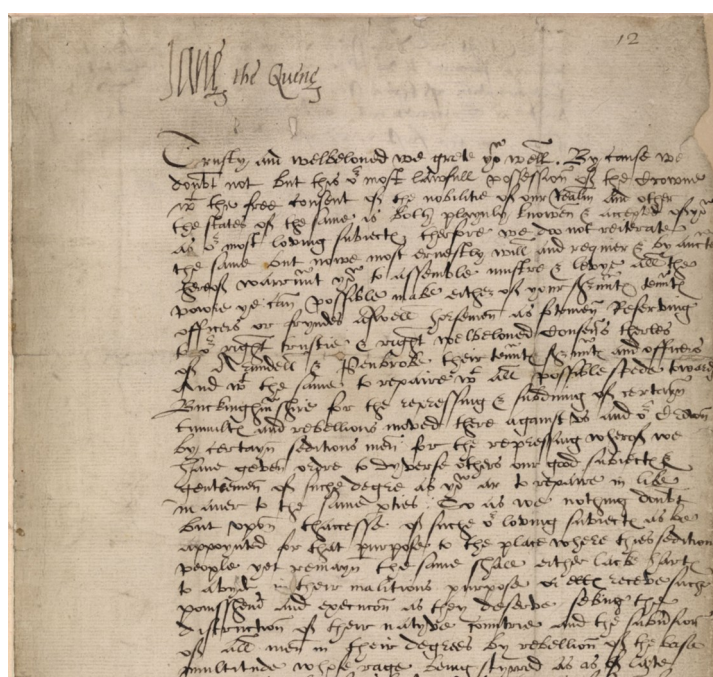 12
Jane the Quene
Trusty and welbeloued we grete yow well. By cause we
doubt not but this or most lawfull possession of the Crowne
wt the free consent of the nobilitie of our Realm and other
the states of the same is both playnly knowen & accepted of yow
as or most loving subiects therfore we do not reiterate
the same but nowe most ernestly will and requier & by auct
herof warrant yow to assemble mustre & levye all the
powre ye can possible make either of your servants tennts
officers or fryndes aswell horsemen as footemen Reserving
to or right trustie & right welbeloued Cousens therles
of Arundell & Penbroke their tennts servants and officers
And wt the same to repaire wt all possible spede towards
Buckinghmshire for the repressing & subduing of certayn
tumults and rebellions moved there against us and or Crown
by certayn seditious men for the repressing wherof we
haue geven ordre to dyverse others our good subiects &
gentlemen of suche degree as yow ar to repaire in like
maner to the same pties. So as we nothing doubt
but vpon thaccesse of suche or loving subiects as be
appoynted for that purpose to the place where thies seditious
people yet remayn the same shall either lacke harts
to abyde in their malitious purpose or elles receve suche
ponishmt and execution as they deserve seking the
distruction of their natyve countrie and the subversion
of all men in their degrees by rebellion of the base
multitude whose rage being styrred as of late